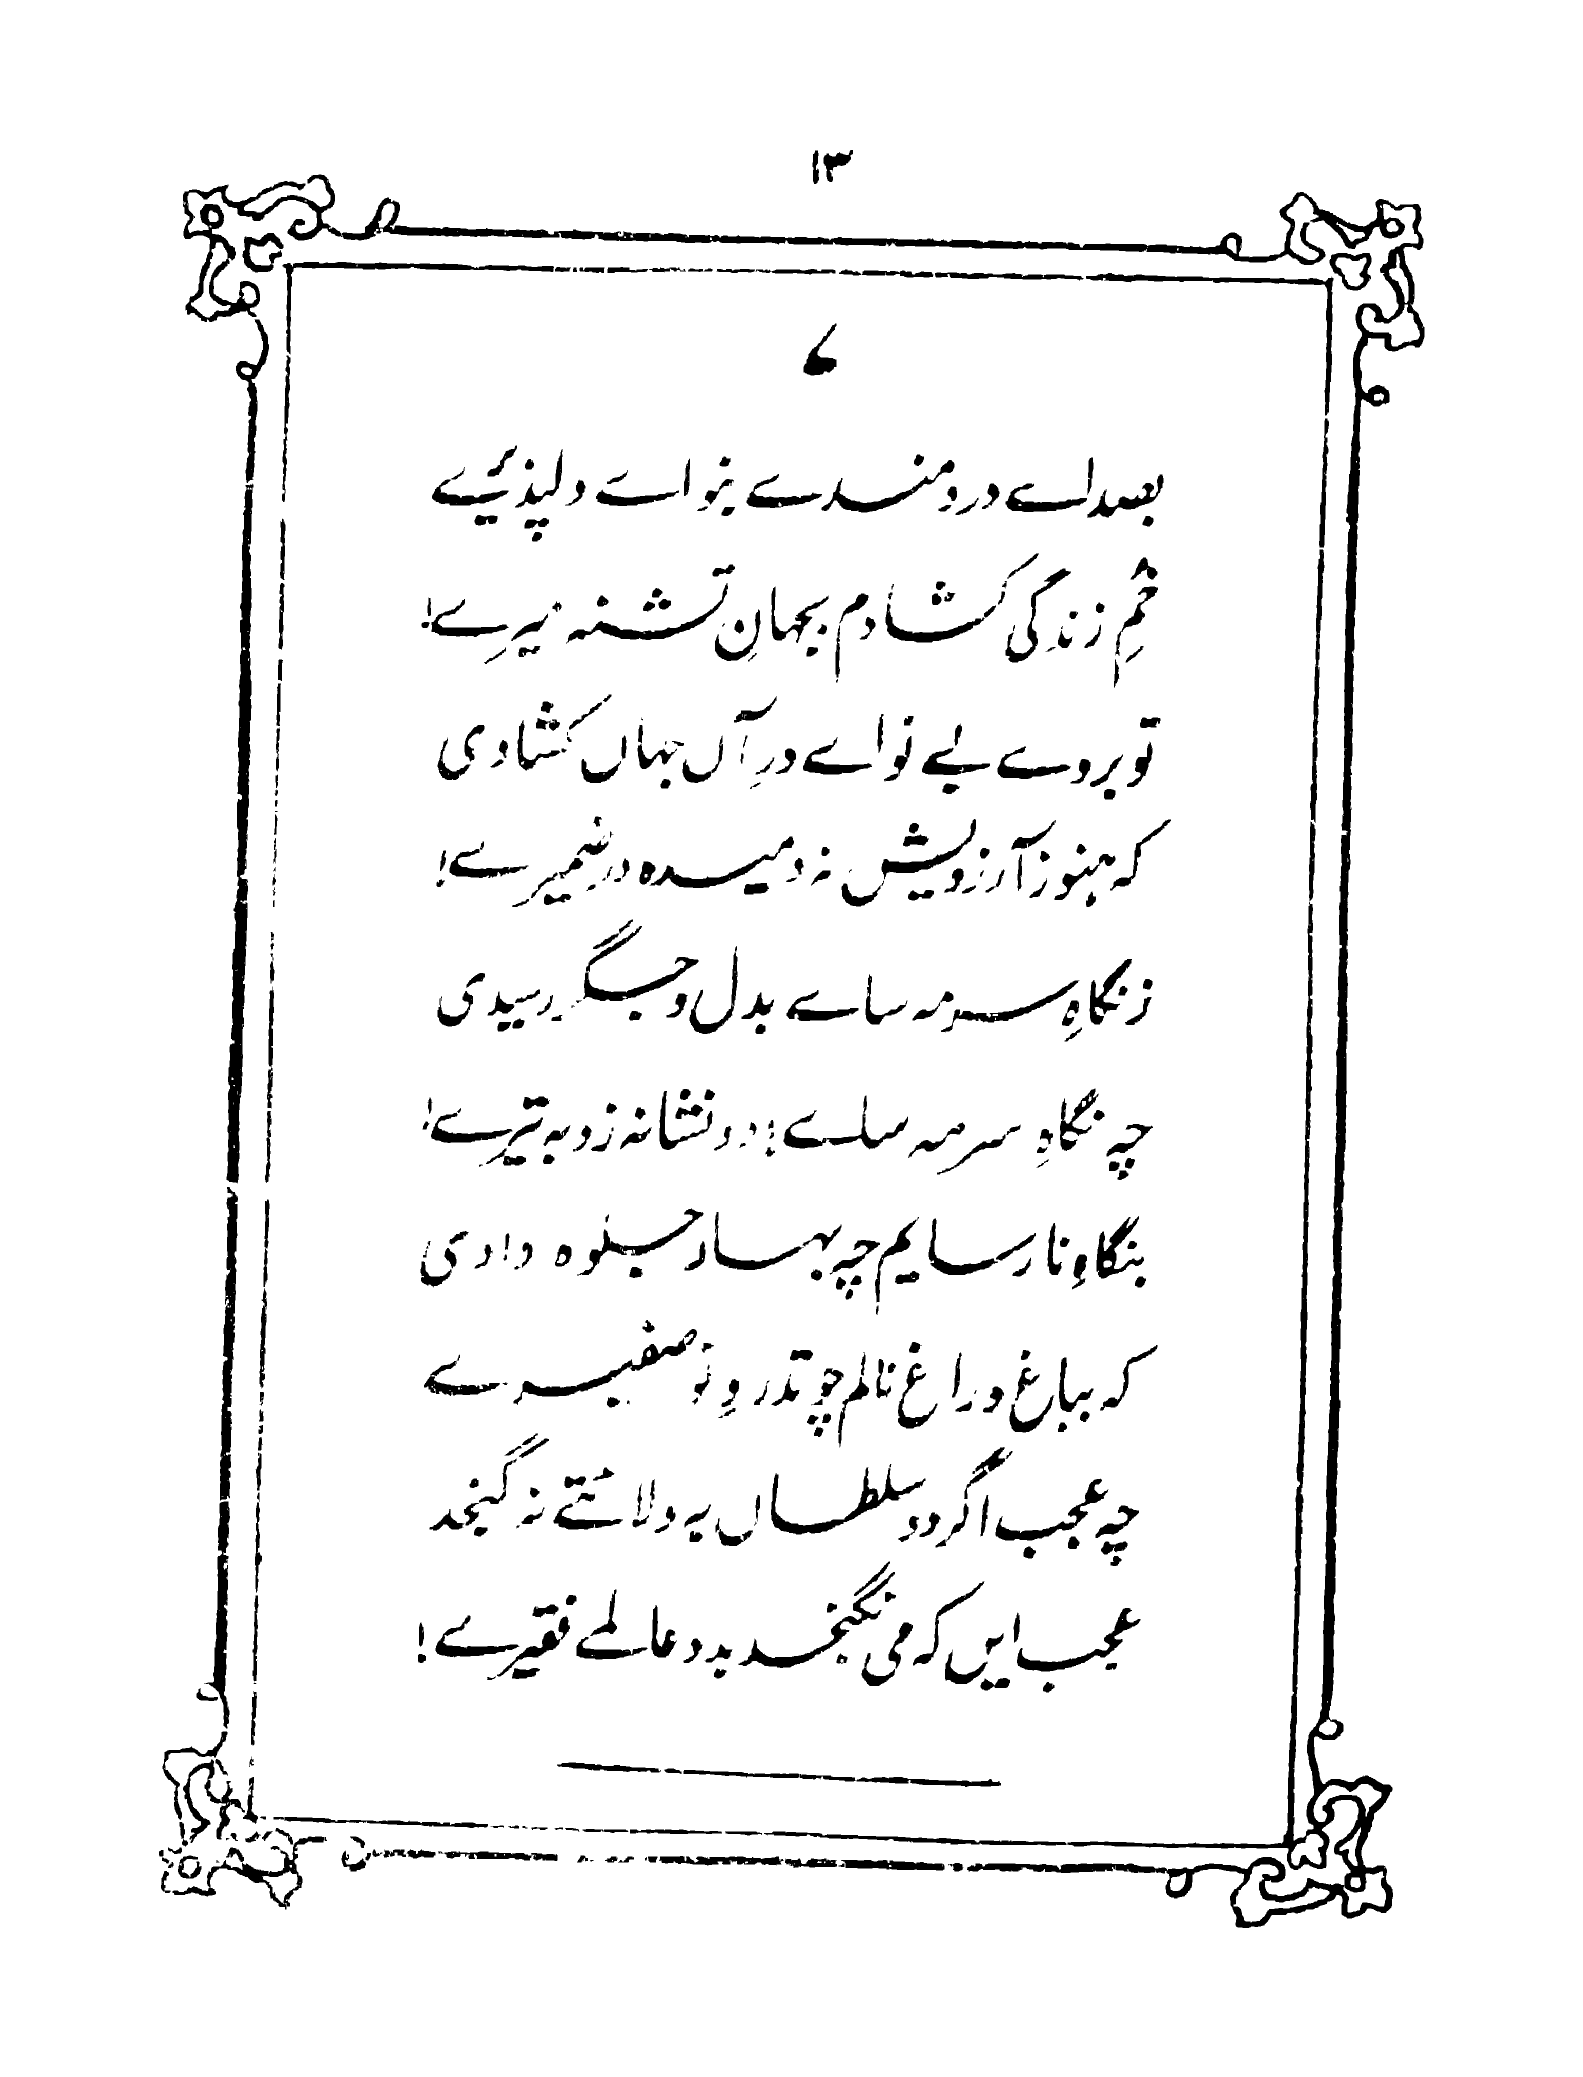 ۱۳
۷
بصداے دردمندے بنواے دلپذیرے
خُمِ زندگی کشادم بجہانِ تشنہ میرے!
تو بروے بے نواے درِ آں جہاں کشادی
کہ ہنوز آرزویش نہ دمیدہ در ضمیرے!
ز نگاہِ سرمہ ساے بدل و جگر رسیدی
چہ نگاہِ سرمہ ساے! دو نشانہ زد بہ تیرے!
بنگاہِ نارسایم چہ بہار جلوہ دادی
کہ بباغ و راغ نالم چو تدروِ نو صفیرے
چہ عجب اگر دو سلطاں بہ ولائتے نہ گنجد
عجب ایں کہ می نگنجد بدو عالمے فقیرے!